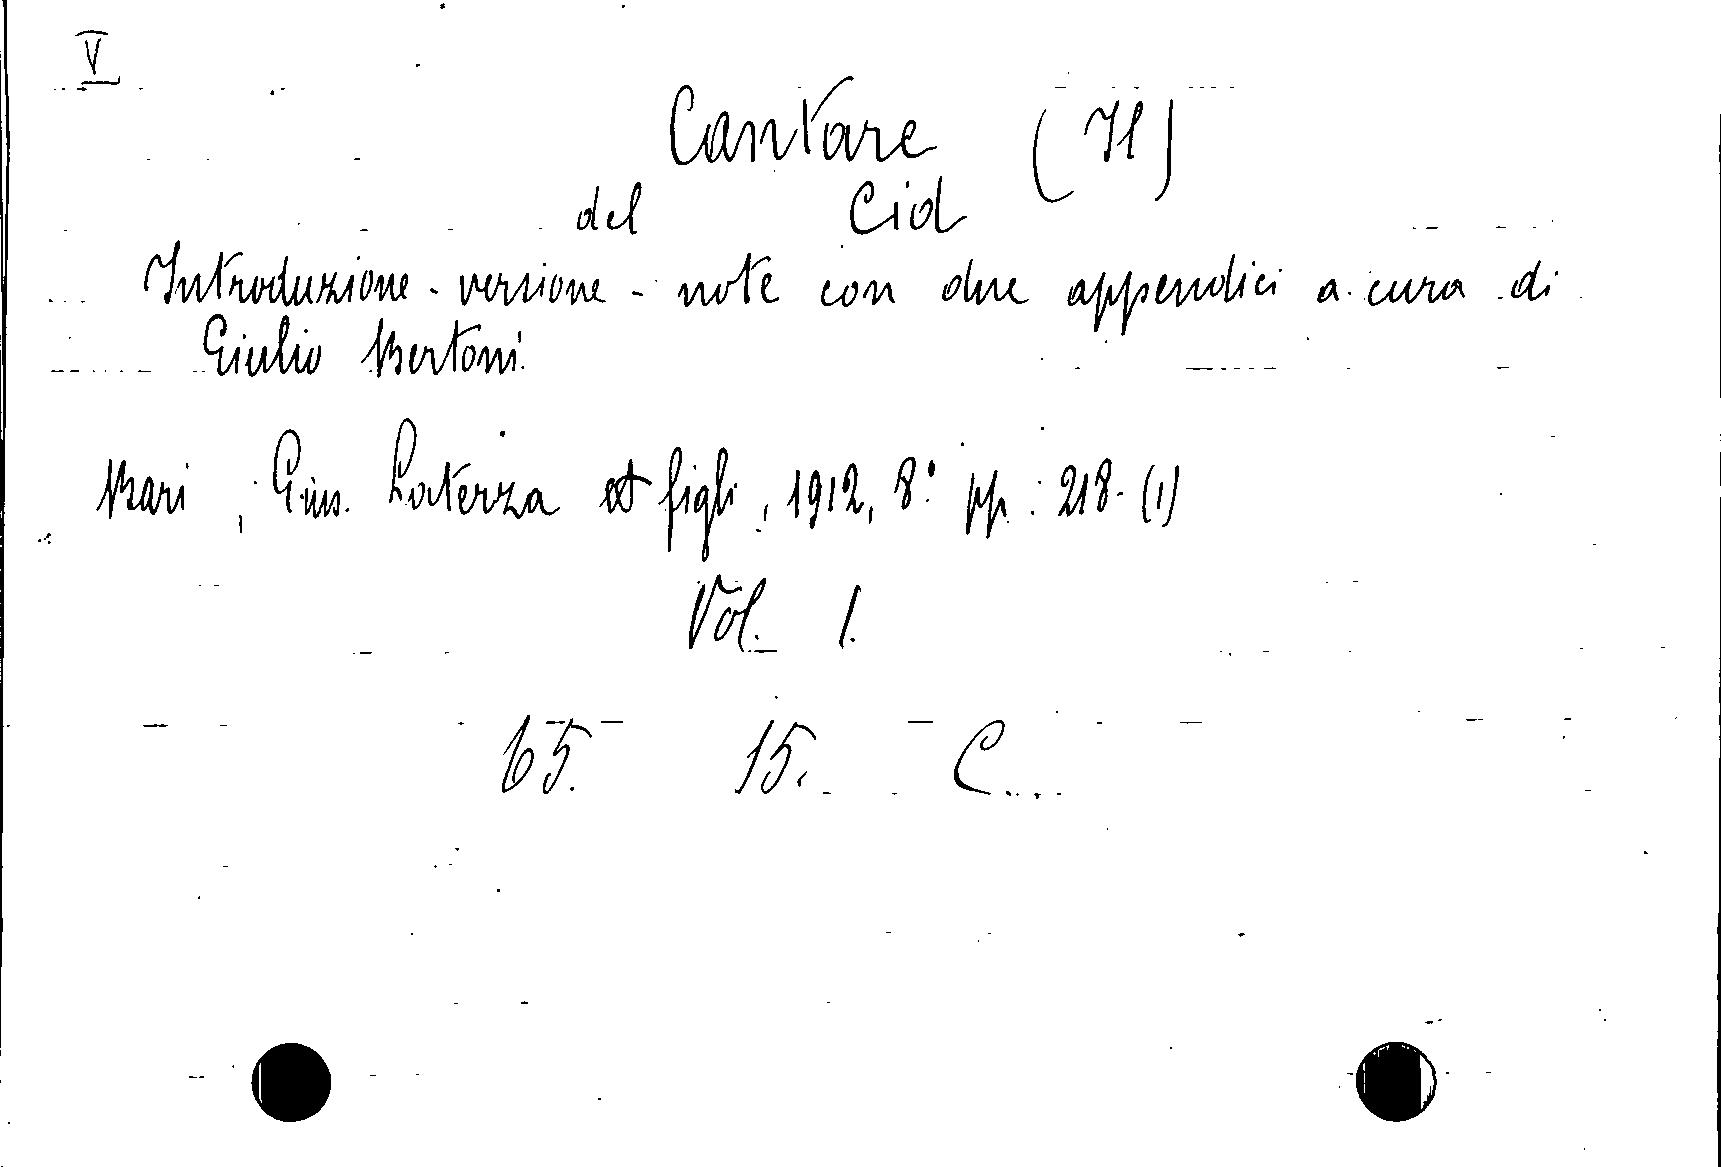 V
Cantare (Il)
del Cid
Introduzione - versione - note con due appendici a cura di
Giulio Bertoni.
Bari, Gius. Laterza et figli, 1912, 8.° pp. 218-(1)
Vol. 1.
65. 15. C...